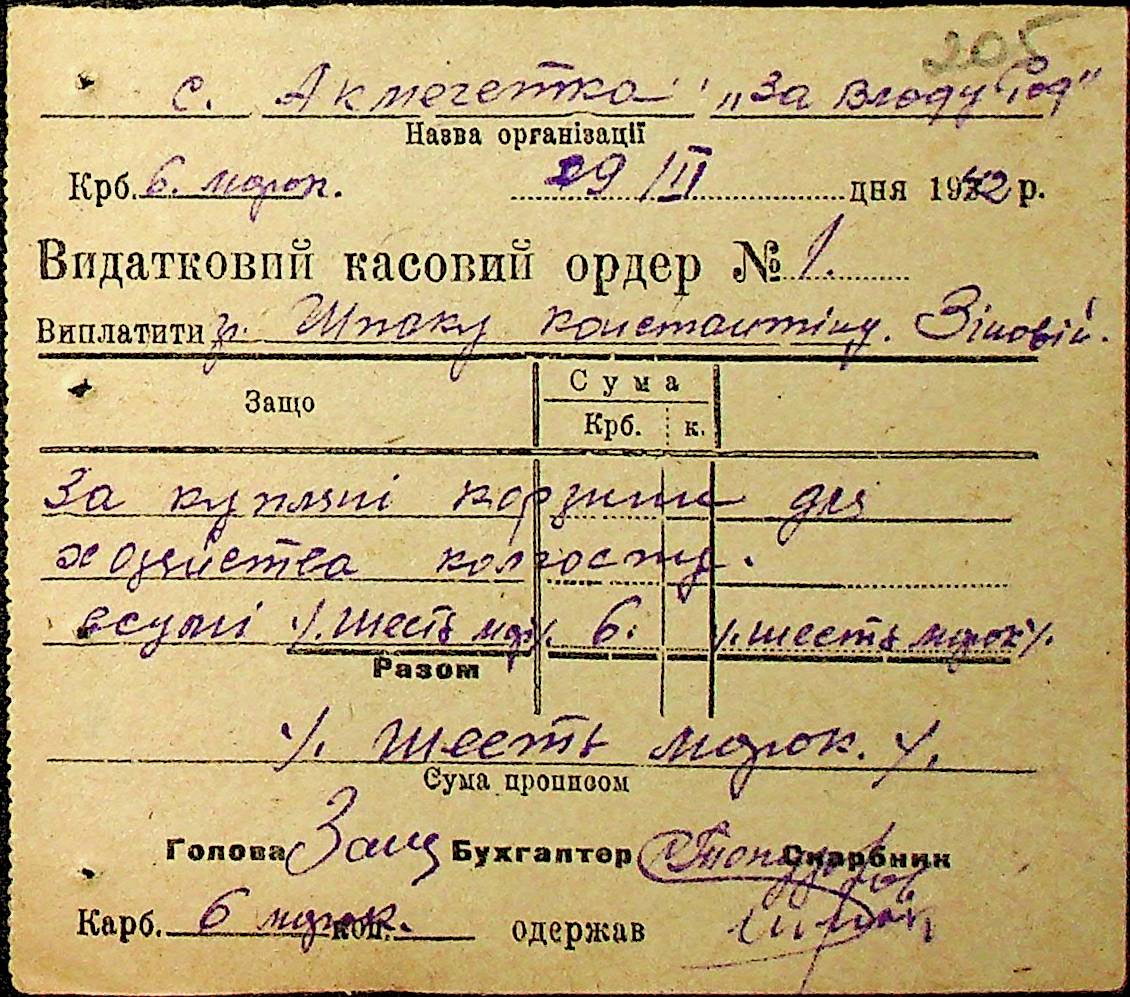 205
с. Акмечетка "За владу Рад"
Назва організації
Крб. 6. марок. 29/III дня 1942 р.
Видатковий касовий ордер № 1.
Виплатити гр. Шпаку Константіну. Зіновій.
Защо Сума
Крб. к.
За купляні корзини для
хозяйства колгоспу.
всумі ·/. шесть мар ·/. 6. ·/. шесть марок ·/.
Разом
·/. шесть марок. ·/.
Сума прописом
Голова Бухгалтер Скарбник
Карб. 6 марок. коп. одержав